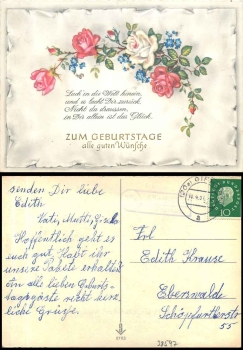 Lach in die Welt hinein,
und es lacht Dir zurück.
Nicht da draussen,
in Dir allein ist das Glück.
ZUM GEBURTSTAGE
alle guten Wünsche
senden Dir liebe
Edith
Vati, Mutti,
Hoffentlich geht es
euch gut. Habt ihr
unsere Pakete erhalten
an alle lieben Geburts-
tagsgäste recht herz.
liche Grüße.
10
Frl
Edith Krause
Eberswalde
Schöpfurtherstr
55
28697